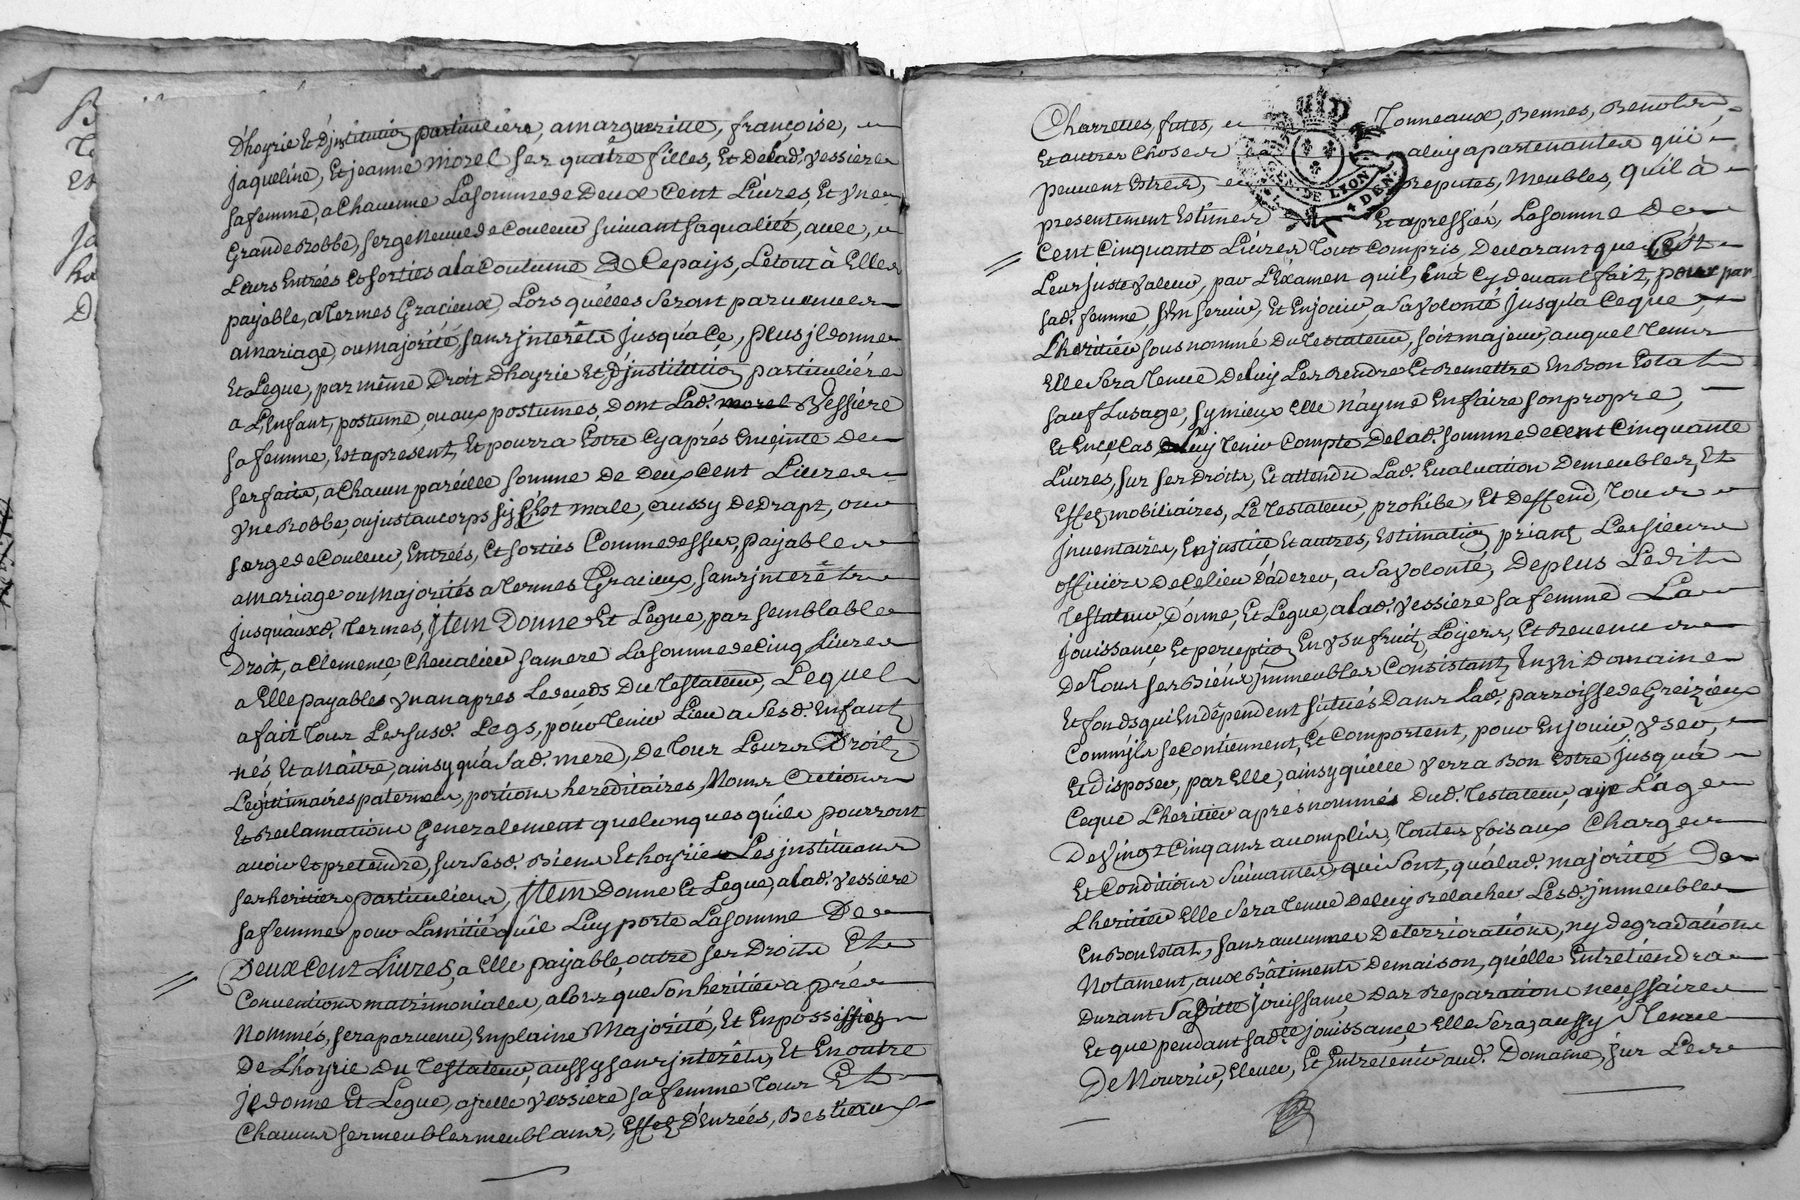 B
Et
D
Dhoyrie Et Dinstitution particuliére, a margueritte, françoise,
Jaqueline, Et jeanne morel ses quatre filles, Et delad. Vessiere
sa femme, a Chacunne La somme de Deux Cent Livres, Et Vne
Grande Robbe, serge Neuve de Couleur suivant sa qualité, avec,
Leurs Entrées Et sorties a la Coutume De Ce païs, Le tout à Elles
payable, a Termes Gracieux, Lors qu'elles seront parvenues
a mariage, ou majorité, sans jnterêts jusqu'a Ce, plus jl donne
Et Legue, par même Droit Dhoyrie Et Djnstitution particuliére
a L'Enfant, postume, ou aux postumes, Dont Lad. morel Vessiére
sa femme, Est apresent, Et pourra Estre Cy aprés Enceinte De
ses faits, a Chacun pareille somme de Deux Cent Livres
Vne Robbe, ou justaucorps sij C'est male, aussy De Drapt, ou
serge de Couleur, Entrées, Et sorties Comme dessus, payable
a mariage ou Majorités a Termes Gracieux, sans jnterêts
jusqu'auxd. Termes, jtem Donne Et Legue, par semblable
Droit, a Clemence Chevalier sa mere La somme de Cinq Livres
a Elle payables Vn an apres Le deceds Du Testateur, Lequel
a fait Tous Les susd. Legs, pour Tenir Lieu a sesd. Enfants
nés, Et a Naître, ainsy qu'à sad. mere, De Tous Leurs Droits
Legitimaires paternels, portions hereditaires, Noms Actions
Et Reclamations Generalement quelconques quils pourront
avoir Et pretendre, sur sesd. Biens Et hoyries Les jnstituans
ses heritiers particuliers, jtem Donne Et Legue, a lad. Vessiere
sa femme pour Lamitié qu'il Luy porte La somme De
Deux Cent Livres, a Elle payable, outre ses Droits Et
Conventions matrimoniales, alors que son heritier aprés
Nommés, sera parvenu, En plaine Majorité, Et En possession
De L'hoyrie du Testateur, aussy sans jnterêts, Et En outre
jl donne Et Legue, a jcelle Vessiere sa femme Tous Et
Chacuns ses meubles meublans, Effets, Denrées, Bestiaux
Charrettes, futes, Tonneaux, Bennes, Benots
Et autres Choses a luy apartenantes qui
peuvent Estres, Reputes, Meubles, qu'il à
presentement Estimes Et apressiés, La somme De
Cent Cinquante Livres Tout Compris, Declarant que C'est
Leur juste Valeur, par L'Examen quil, En a Cy devant fait, pour par
sad. femme, s'En servir, Et En jouir, a sa Volonté jusqu'a Ceque
L'heritier sous nommé Du Testateur, soit majeur, auquel Tems
Elle sera Tenue De luy Les Rendre Et Remettre En Bon Estat
sauf Lusage, sy mieux Elle n'ayme En faire son propre,
Et En ce Cas De luy Tenir Compte De lad. somme de Cent Cinquante
Livres, sur ses Droits, Et attendu Lad. Evaluation De meubles, Et
Effets mobiliaires, Le Testateur, prohibe, Et Deffend, Tous
jnventaires, En justice Et autres, Estimation priant Les sieurs
officiers De Ce lieu D'aderer, a sa Volonté, De plus Ledit
Testateur, Donne, Et Legue, a lad. Vessiere sa femme La
jouissance, Et perception, En Vsufruit, Loyers, Et Revenus
De Tous ses Biens jmmeubles Consistant, En Vn Domaine
Et fonds qui En dépendent sitüés Dans Lad. parroisse de Greizieux
Comm'jls se Contiennent, Et Comportent, pour En jouir, Vser,
Et Disposer, par Elle, ainsy qu'elle Verra Bon Estre jusqu'à
Ceque L'heritier aprés nommés Dud. Testateur, aye L'age
De Vingt Cinq ans accomplis, Toutes fois aux Charges
Et Conditions suivantes, qui sont, qu'a lad. majorité De
L'heritier Elle sera Tenue De luy Relacher Lesd. jmmeubles
En Bon Estat, sans aucunnes Deterriorations, ny degradations
Notament, aux Bâtiments De maison, qu'elle Entretiendra
Durant sa Ditte jouissance, Des Reparations necessaires
Et que pendant sad.te jouissance, Elle sera, aussy Tenue
De Nourrir, Elever, Et Entretenir aud. Domaine, sur Les
GEN. DE LYON
4 DEN.